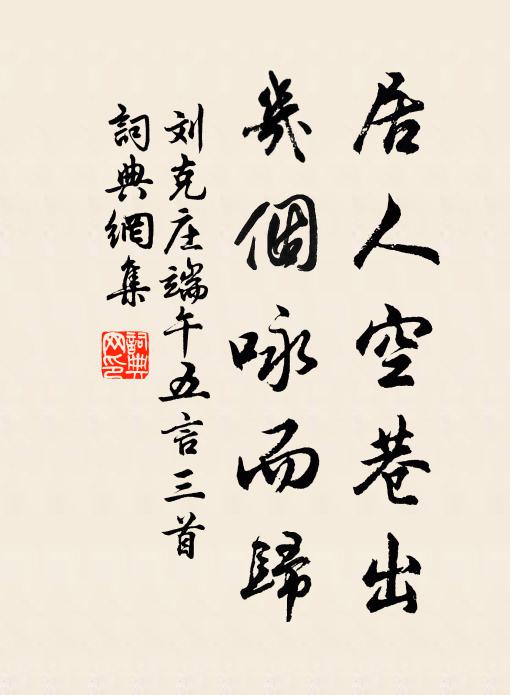 居人空巷出
幾個咏而歸
刘克庄端午五言三首
詞典網集
詞典网印